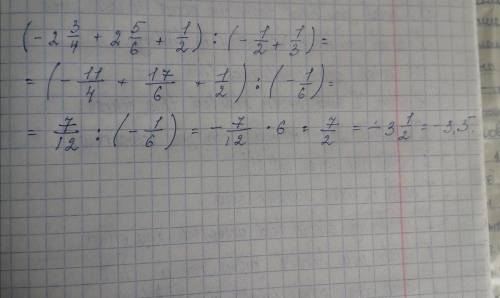 (- 2 3/4 + 2 5/6 + 1/2) : (- 1/2 + 1/3) =
= (- 11/4 + 17/6 + 1/2) : (- 1/6) =
= 7/12 : (- 1/6) = - 7/12 · 6 = 7/2 = - 3 1/2 = - 3,5.